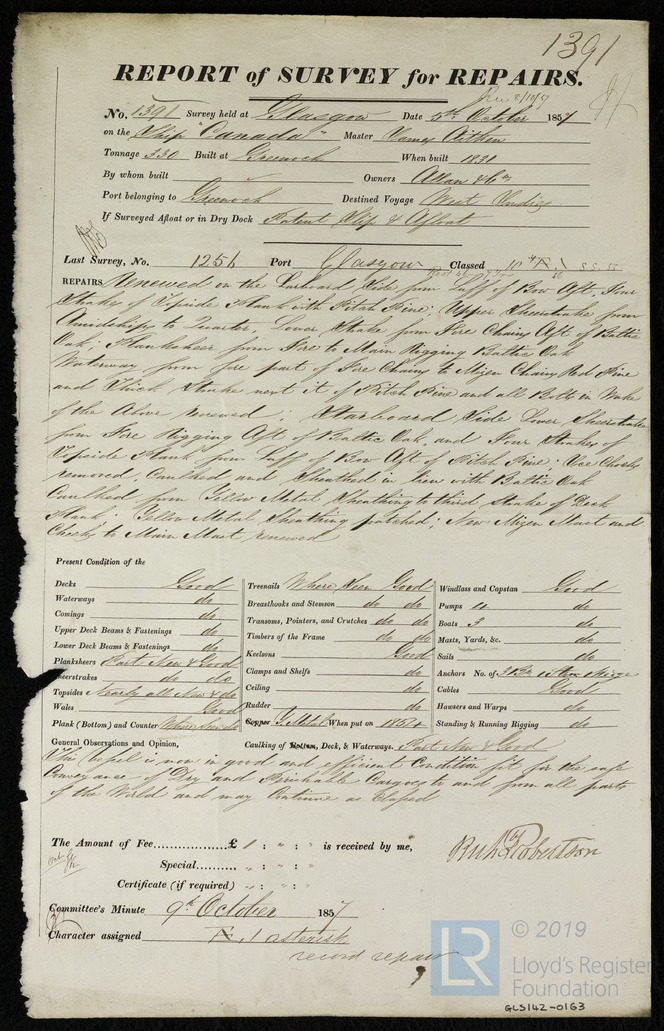 1391
REPORT of SURVEY for REPAIRS.
Rec 8/10/57
No. 1391 Survey held at Glasgow Date 5th October 1857
on the Ship "Canada" Master James Aitken
Tonnage 330 Built at Greenock When built 1831
By whom built Owners Allan & Co
Port belonging to Greenock Destined Voyage West Indies
If Surveyed Afloat or in Dry Dock Patent Slip & Afloat
Last Survey, No. 1256 Port Glasgow Classed
REPAIRS Renewed on the Larboard Side from Luff of Bow Aft, Four
Strakes of Topside Plank with Pitch Pine; Upper Sheerstrake from
Amidships to Quarter, Lower Strake from Fore Chains Aft of Baltic
Oak; Planksheer from Fore to Main Rigging Baltic Oak
Waterway from fore part of Fore Chains to Mizen Chains Red Pine
and Thick Strake next it of Pitch Pine and all Bolts in Wake
of the Above renewed; Starboard Side Lower Sheerstrake
from Fore Rigging Aft of Baltic Oak, and Four Strakes of
Topside Plank from Luff of Bow Aft of Pitch Pine; Ice Chocks
removed, Caulked and Sheathed in lieu with Baltic Oak
Caulked from Yellow Metal Sheathing to third Strake of Deck
Plank; Yellow Metal Sheathing patched; New Mizen Mast and
Cheeks to Main Mast renewed
Present Condition of the
Decks Good
Waterways do
Comings do
Upper Deck Beams & Fastenings do
Lower Deck Beams & Fastenings do
Planksheers Part New & Good
heerstrakes do do
Topsides Nearly all New & do
Wales Good
Plank (Bottom) and Counter Where seen do
Treenails Where Seen Good
Breasthooks and Stemson do do
Transoms, Pointers, and Crutches do do
Timbers of the Frame do do
Keelsons Good
Clamps and Shelfs do
Ceiling do
Rudder do
Copper Y. Metal When put on 1854
Caulking of Bottom, Deck, & Waterways. Part New & Good
Windlass and Capstan Good
Pumps 4 do
Boats 3 do
Masts, Yards, &c. do
Sails do
Anchors No. of 3 Br 1 Stm 1 Kedge
Cables Good
Hawsers and Warps do
Standing & Running Rigging do
General Observations and Opinion,
This Vessel is now in good and efficient Condition fit for the safe
Conveyance of Dry and Perishable Cargoes to and from all parts
of the World and may Continue as Classed
The Amount of Fee £ 1 : " : " is received by me,
Special " : " : "
Certificate (if required) " : " : "
Robertson
Committee's Minute 9th October 1857
Character assigned A. 1 asterisk
record repairs
LR
© 2019
Lloyd's Register
Foundation
GLS142-0163